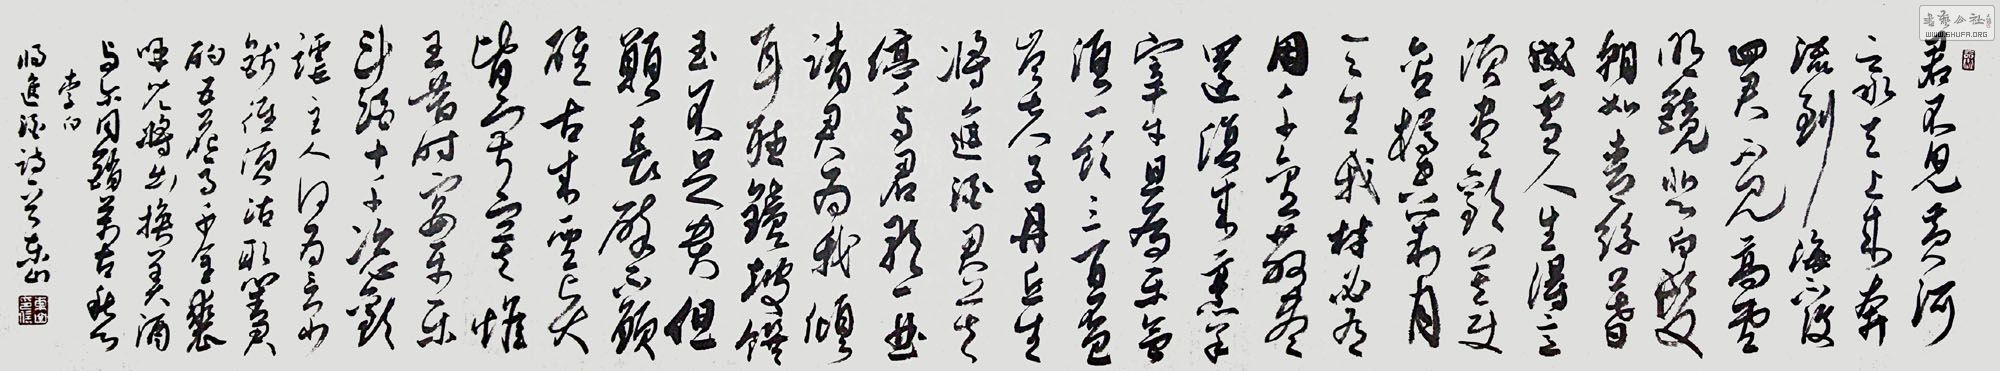 君不見黄河
之水天上来奔
流到海不復
回君不見高堂
明鏡悲白髮
朝如青絲暮
成雪人生得意
須盡歡莫使
金樽空對月
天生我材必有
用千金散盡
還復来烹羊
宰牛且為樂會
須一飲三百杯
岑夫子丹丘生
將進酒君莫
停與君歌一曲
請君為我傾
耳聽鐘鼓饌
玉不足貴但
願長醉不願
醒古来聖賢
皆寂寞惟
王昔時宴平樂
斗酒十千恣歡
謔主人何為言少
錢徑須沽取對君
酌五花馬千金裘
呼兒將出換美酒
與爾同銷萬古愁
李白
將進酒詩一首
書藝公社
WWW.SHUFA.ORG